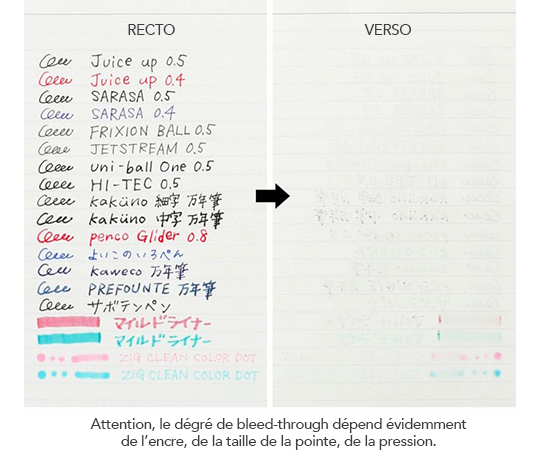 RECTO
VERSO
Juice up 0.5
Juice up 0.4
SARASA 0.5
SARASA 0.4
FRIXION BALL 0.5
JETSTREAM 0.5
uni-ball One 0.5
HI-TEC 0.5
kaküno 細字 万年筆
kaküno 中字 万年筆
penco Glider 0.8
よいこのいろぺん
kaweco 万年筆
PREFOUNTE 万年筆
サボテンペン
マイルドライナー
マイルドライナー
ZIG CLEAN COLOR DOT
ZIG CLEAN COLOR DOT
Attention, le dégré de bleed-through dépend évidemment
de l'encre, de la taille de la pointe, de la pression.